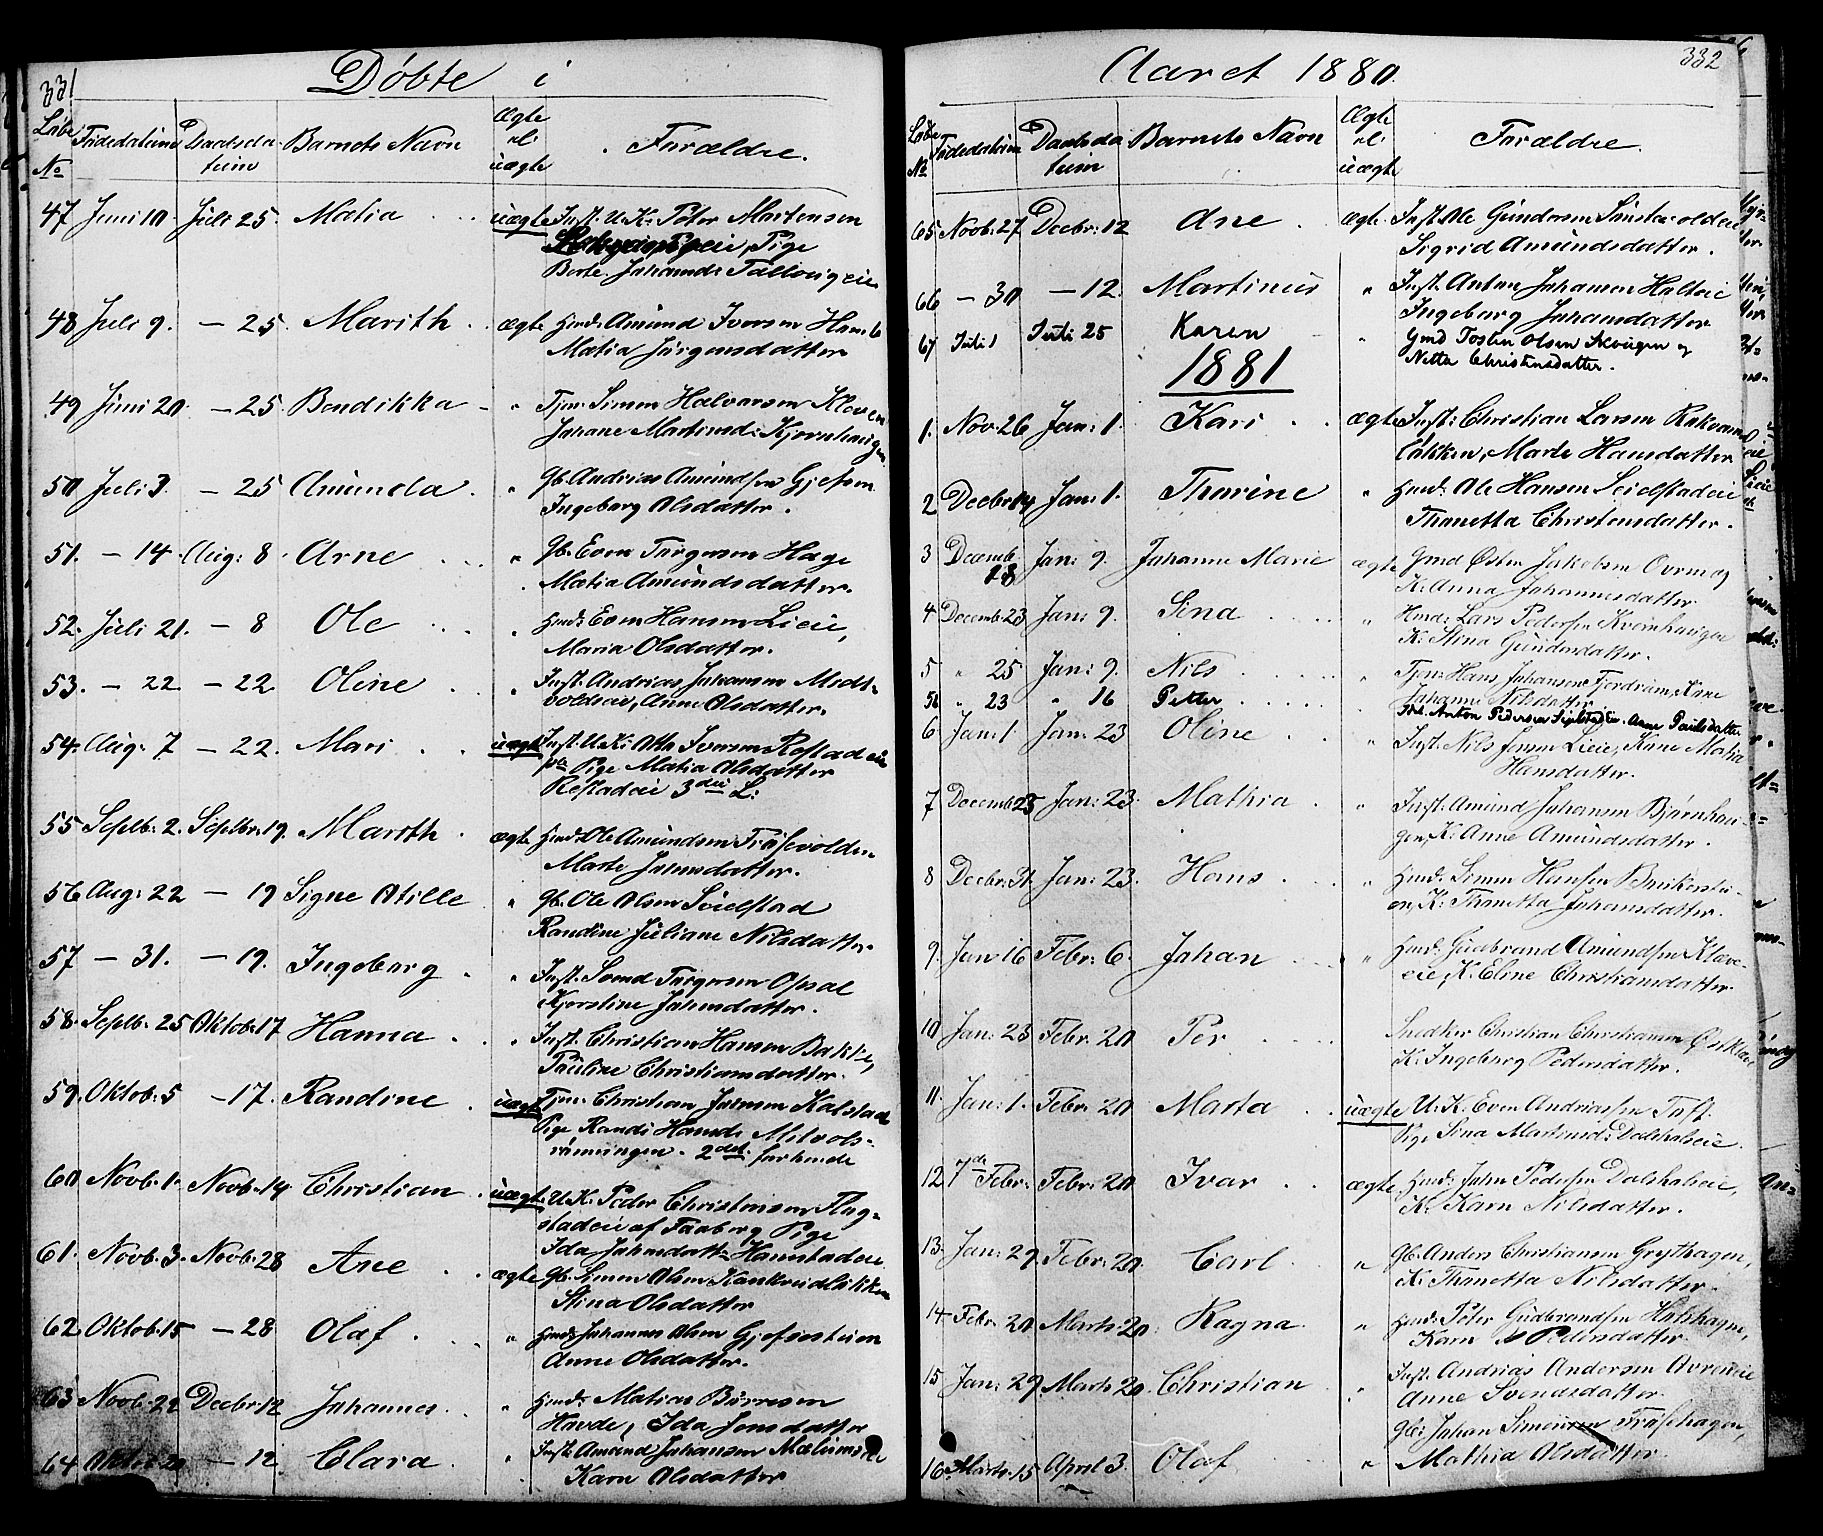 331
Döbte i
Löbe No Födedatum Daabsdatum Barnets Navn Ægte el. uægte Forældre.
47 Juni 10. Juli 25. Matia uægte Inst. U.K. Peter Martensen
Pige
Berte Johannsd:
48 Juli 9. — 25. Marith ægte Hmd: Amund Iversen
Matia Jörgensdatter
49 Juni 20. — 25. Bendikka " Tjen: Simen Halvorsen Kloven
Johane Martinsd: Kjernhaugen
50 Juli 3. — 25 Amunda " Gb. Andrias Amundsen Gjefsen
Ingeborg Olsdatter.
51. — 14. Aug: 8. Arne " Gb. Even Torgersen Hage
Matia Amundsdatter.
52. Juli 21. — 8 Ole " Hmd: Even Hansen Lieie,
Maria Olsdatter.
53. — 22 — 22 Oline " Inst. Andrias Johansen
Anne Olsdatter.
54. Aug: 7 — 22. Mari uægte Inst. U.K. Otto Iversen Rostadeie
Pige Matia Olsdatter
Rostadeie 3die L:
55 Septb: 2. Septbr: 19. Marith ægte Hmd: Ole Amundsen
Marte Johnsdatter.
56 Aug: 22 — 19 Signe Otille " Gb. Ole Olsen Seielstad
Randine Juliane Nilsdatter
57 — 31. — 19. Ingeborg " Inst. Svend Torgersen Opsal
Kjerstine Johnsdatter.
58. Septb: 25 Oktob: 17 Hanna " Inst. Christian Hansen Bakkeie,
Pauline Christiansdatter.
59. Oktob: 5 — 17. Randine uægte Tjen: Christian Jensen Kalstad
Pige Randi Hansd:
rönningen. 2det forhende
60 Novb. 1. Novb. 14 Christian uægte U.K. Peder Christensen Flug-
stadeie af Faaberg Pige
Ida Johnsdatt: Hamstadeie
61. Novb. 3. Novb. 28 Ane ægte Gb. Simen Olsen
Stina Olsdatter
62 Oktob. 15 — 28 Olaf " Hmd: Johannes Olsen
Anne Olsdatter.
63 Novb. 22 Decbr. 12 Johannes " Hmd: Matias Börresen
Havde, Ida Jensdatter
64 Oktob 20 — 12. Clara " Inst. Amund Johansen
Karn Olsdatter
332
Aaret 1880.
Löbe No Födedatum Daabsdatum Barnets Navn Ægte el. uægte Forældre.
65 Novb. 27 Decbr: 12 Ane ægte Inst. Ole Gundersen
Sigrid Amundsdatter.
66 — 30 — 12. Martinus " Inst. Anton Johansen Holteie
Ingeborg Johansdatter
67 Juli 1 Juli 25 Karen " Gmd Tosten Olsen Skougen og
Netta Christensdatter.
1881
1. Nov. 26 Jan: 1. Kari ægte Inst: Christian Larsen Rakvam
lökken, Marte Hansdatter
2 Decbr 14 Jan: 1. Thorine " Hmd. Ole Hansen Seielstadeie
Thonetta Christensdatter.
3 Decemb. 18 Jan: 9. Johanne Marie ægte Gmd Østen Jakobsen Ovren og
K. Anna Johannesdatter
4 Decemb. 23 Jan: 9. Sina " Hmd: Lars Pedersen Kvernhaugen
K. Stina Gundersdatter.
5 " 25 Jan: 9. Nils " Tjen: Hans Johansen Fjerdrum, Kone
Johanne Nilsdatter
5b " 23 " 16 Petter " Inst. Anton Pedersen Seielstadeie. Anne Paulsdatter
6 Jan: 1 Jan: 23 Oline " Inst. Nils Jensen Lieie, Kone Matia
Hansdatter.
7 Decemb. 25 Jan: 23. Mathia " Inst. Amund Johansen Björnhau-
gen, K. Anne Amundsdatter.
8 Decbr. 31. Jan: 23. Hans " Hmd: Simen Hansen
K. Thonetta Johansdatter.
9. Jan 16 Febr. 6. Johan " Hmd. Gudbrand Amundsen Klove-
eie, K. Eline Christiansdatter
10 Jan: 23 Febr. 20 Per Snedker Christian Christiansen
K. Ingeborg Pedersdatter.
11. Jan: 1. Febr. 20 Marta uægte U.K. Even Andriassen Toft.
Pige Sina Martinsd: Dalshaleie.
12 7de Febr. Febr. 20 Ivar ægte Hmd. John Pedersen Dalshaleie,
K. Karn Nilsdatter.
13. Jan: 29 Febr. 20. Carl " Gb. Anders Christiansen Grythagen,
K. Thonetta Nilsdatter.
14 Febr. 20 Marts 20 Ragna " Hmd. Peter Gudbrandsen
Karn Pedersdatter
15 Jan: 29. Marts 20. Christian " Inst. Andrias Andersen Avreneie
Anne Svendsdatter.
16 Marts. 15 April 3. Olaf " Gb: Johan Simensen Fröshagen,
Mathia Olsdatter.